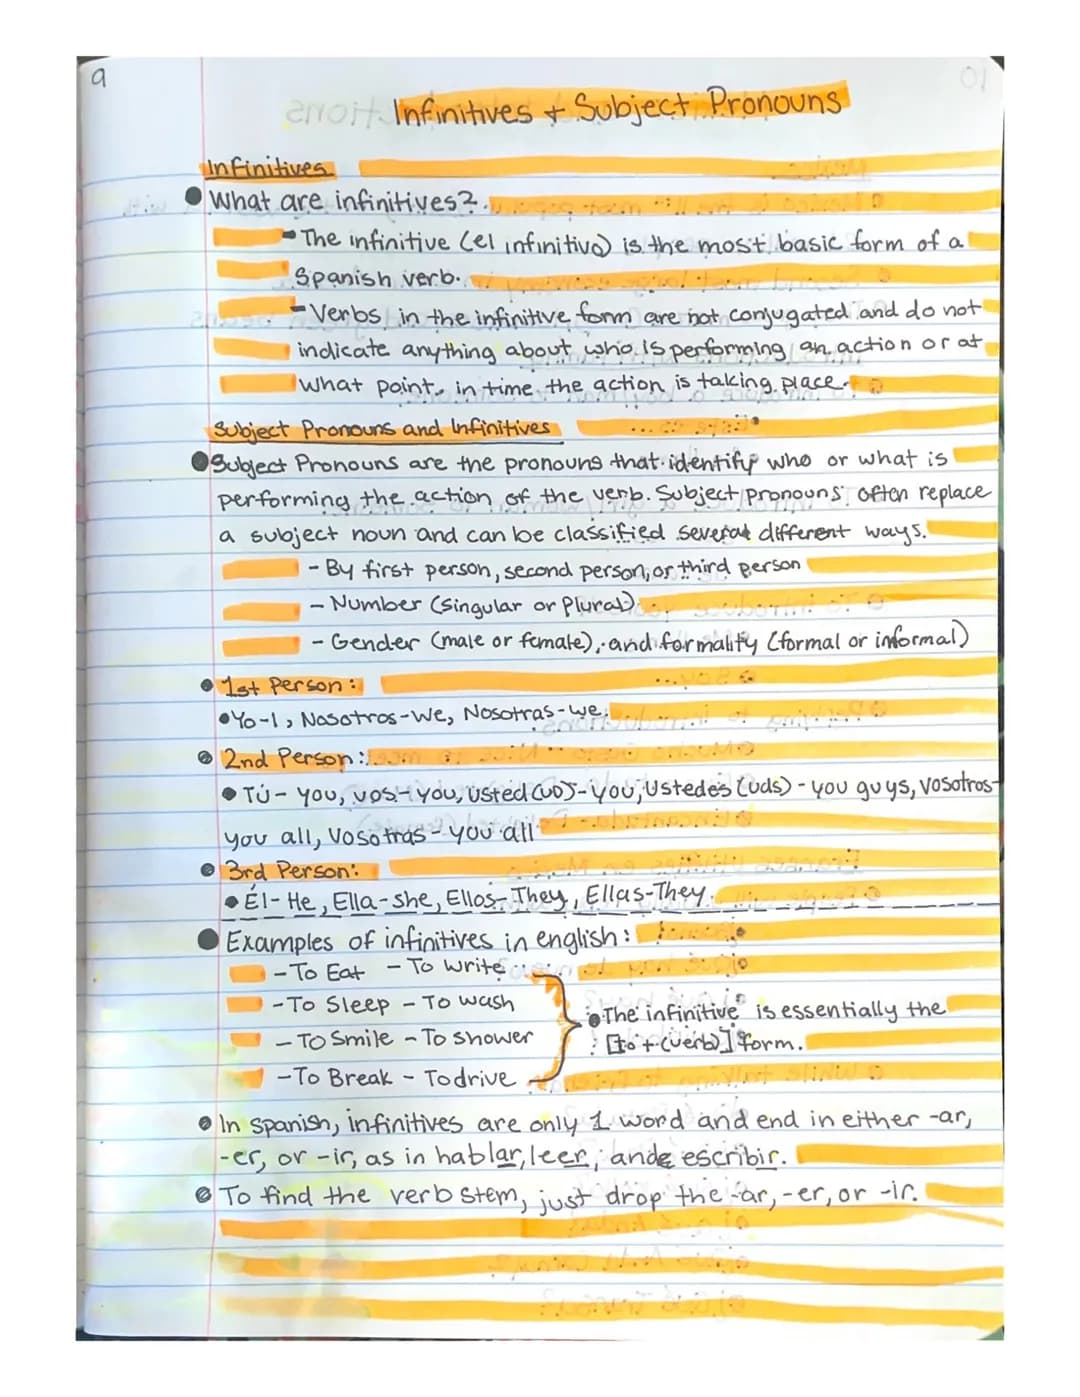 9
10
Infinitives + Subject Pronouns
Infinitives
What are infinitives?
- The infinitive (el infinitivo) is the most basic form of a
Spanish verb.
- Verbs in the infinitive form are not conjugated and do not
indicate anything about who is performing an action or at
what point in time the action is taking place.
Subject Pronouns and Infinitives
Subject Pronouns are the pronouns that identify who or what is
performing the action of the verb. Subject pronouns often replace
a subject noun and can be classified several different ways.
- By first person, second person, or third person
- Number (singular or plural)
- Gender (male or female), and formality (formal or informal)
1st Person:
Yo-I, Nosotros-we, Nosotras-we.
2nd Person:
Tú- you, vos- you, usted (UD)-you, Ustedes (uds) - you guys, vosotros-
you all, Vosotras - you all
3rd Person:
Él- He, Ella-she, Ellos- They, Ellas-They.
Examples of infinitives in english:
- To Eat - To write
- To Sleep - To wash
- To Smile - To shower
- To Break - To drive
The infinitive is essentially the
[to + (verb)] form.
In Spanish, infinitives are only 1 word and end in either -ar,
-er, or -ir, as in hablar, leer, and escribir.
To find the verb stem, just drop the -ar, -er, or -ir.